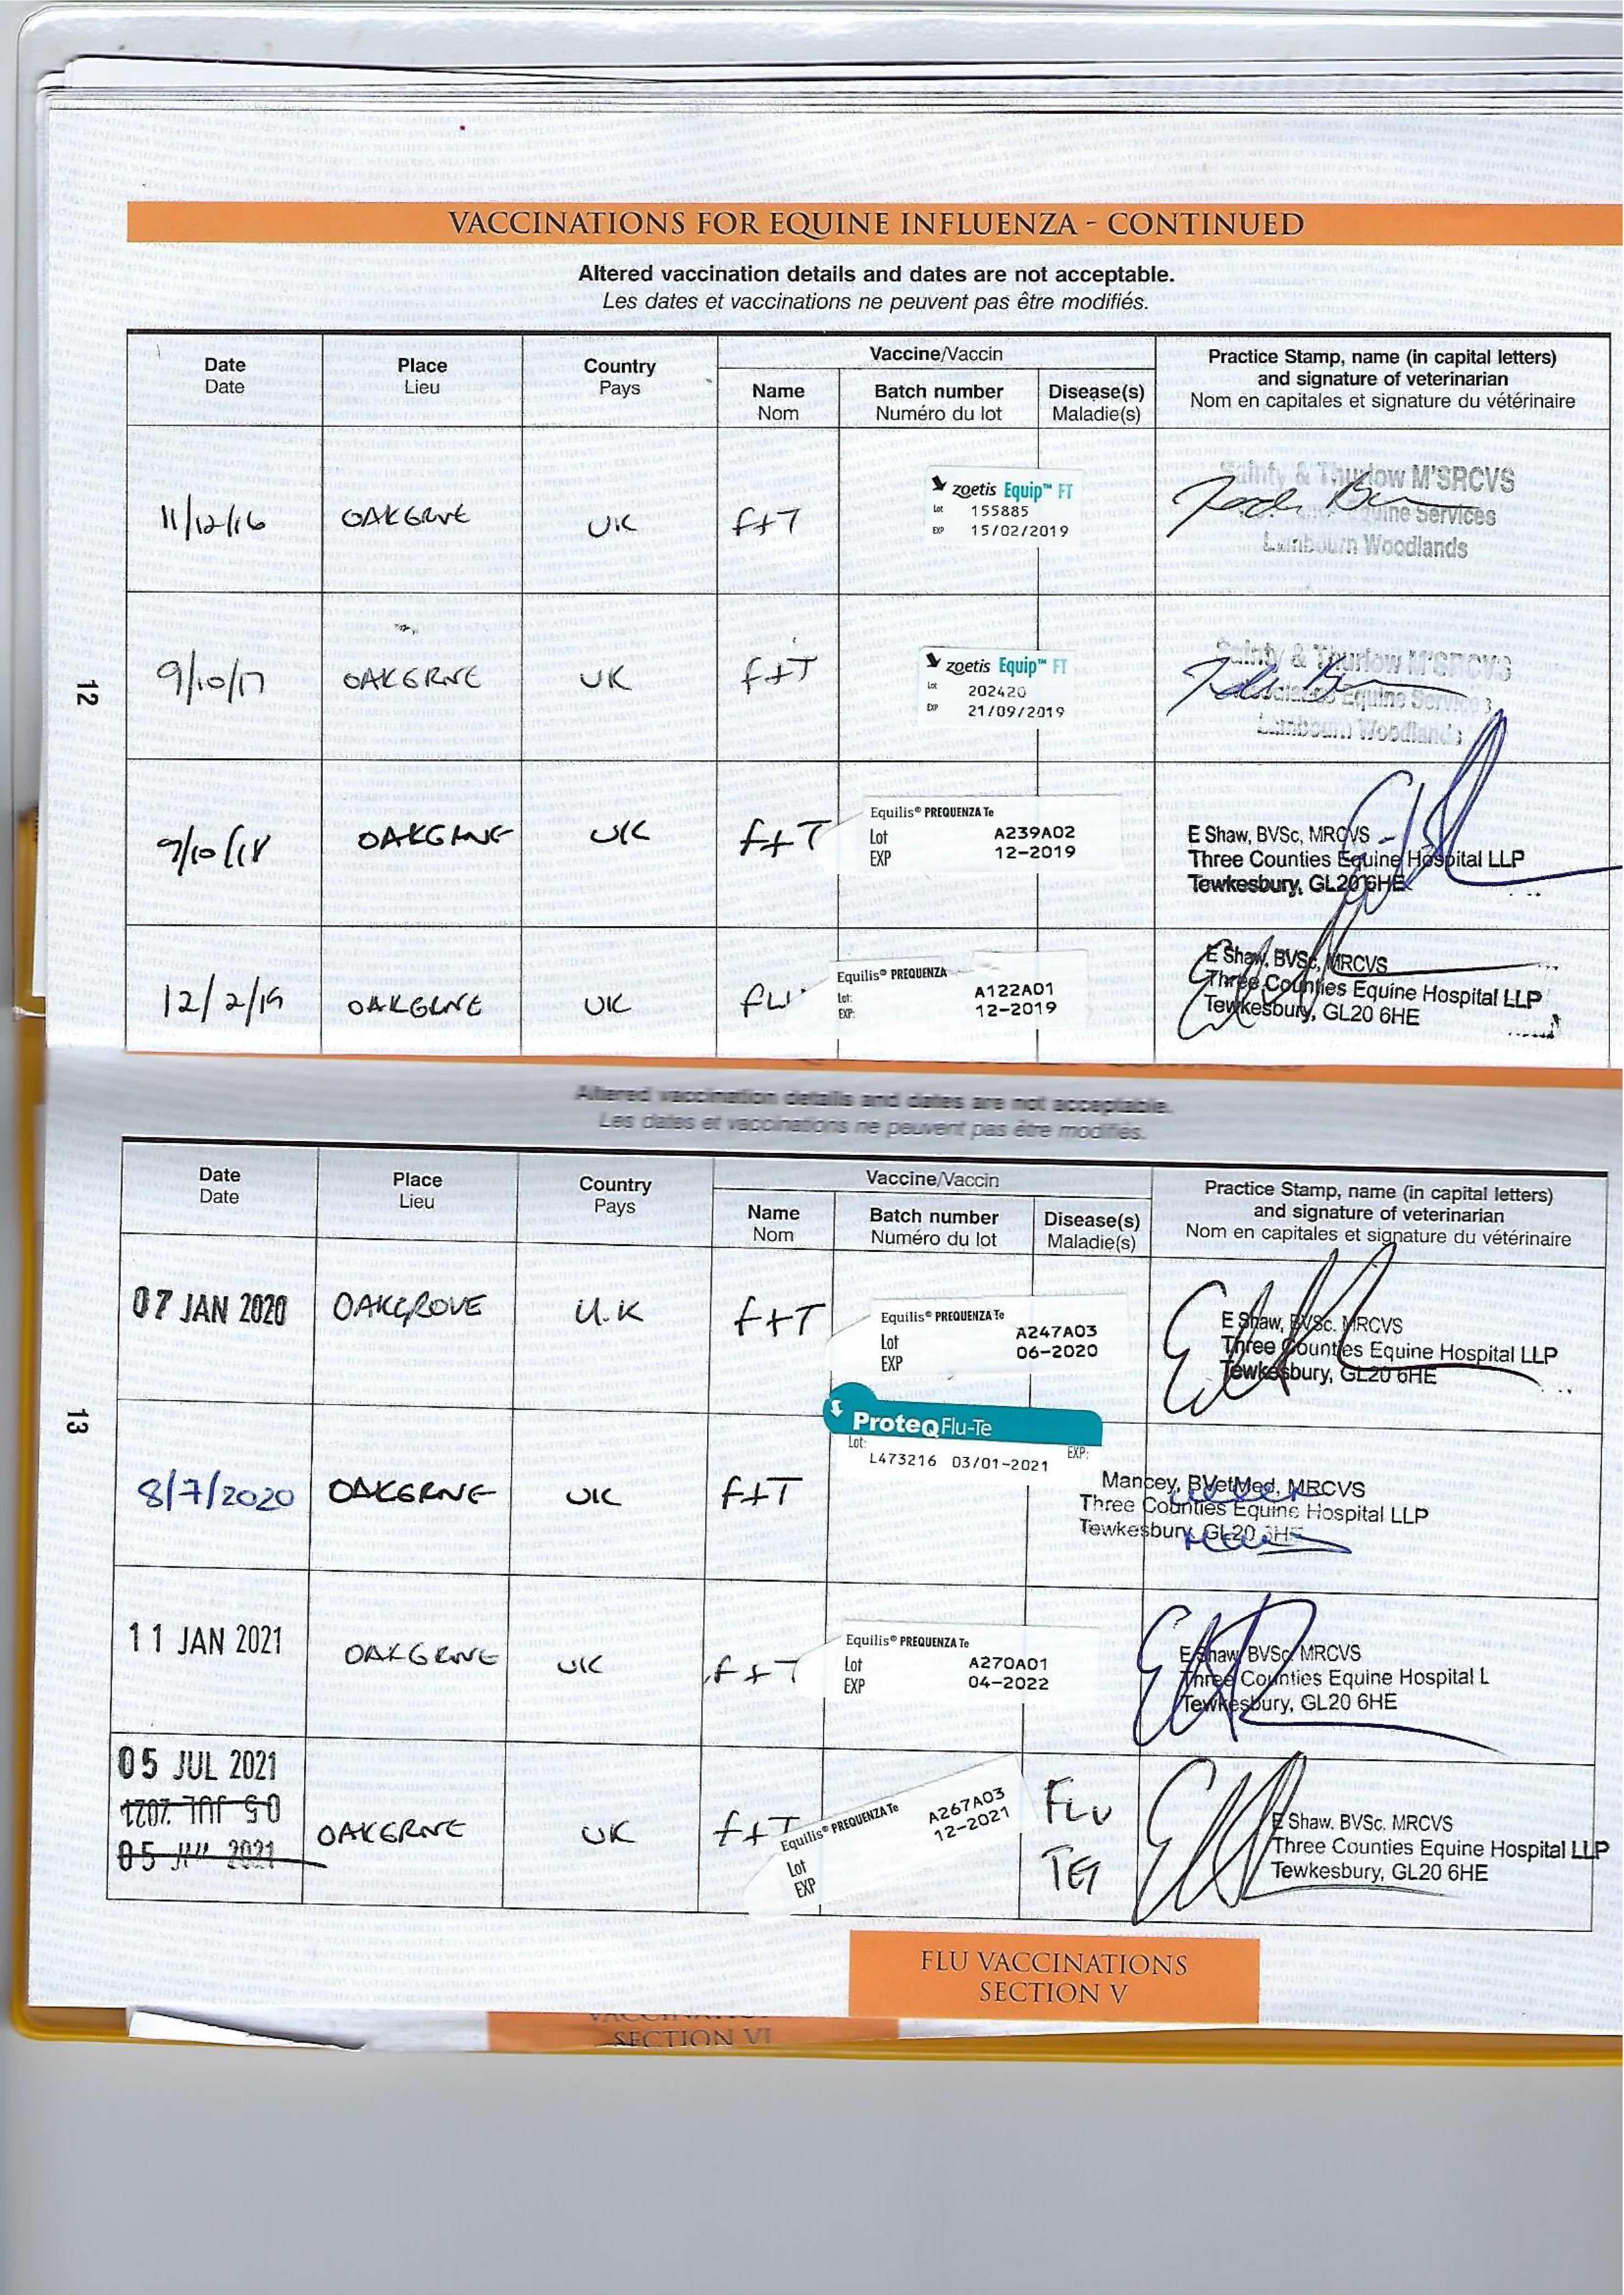 VACCINATIONS FOR EQUINE INFLUENZA - CONTINUED
Altered vaccination details and dates are not acceptable.
Les dates et vaccinations ne peuvent pas être modifiés.
Date
Date
Place
Lieu
Country
Pays
Vaccine/Vaccin
Name
Nom
Batch number
Numéro du lot
Disease(s)
Maladie(s)
Practice Stamp, name (in capital letters)
and signature of veterinarian
Nom en capitales et signature du vétérinaire
11/12/16
OAKGROVE
UK
f+T
zoetis Equip™ FT
Lot 155885
EXP 15/02/2019
Sainty & Thurlow M'SRCVS
Equine Services
Lambourn Woodlands
12
9/10/17
OAKGROVE
UK
f+T
zoetis Equip™ FT
Lot 202420
EXP 21/09/2019
Sainty & Thurlow M'SRCVS
Associates Equine Services
Lambourn Woodlands
9/10/18
OAKGROVE
UK
f+T
Equilis® PREQUENZA Te
Lot A239A02
EXP 12-2019
E Shaw, BVSc, MRCVS
Three Counties Equine Hospital LLP
Tewkesbury, GL20 6HE
12/2/19
OAKGROVE
UK
flu
Equilis® PREQUENZA
Lot: A122A01
EXP: 12-2019
E Shaw, BVSc, MRCVS
Three Counties Equine Hospital LLP
Tewkesbury, GL20 6HE
Altered vaccination details and dates are not acceptable.
Les dates et vaccinations ne peuvent pas être modifiés.
Date
Date
Place
Lieu
Country
Pays
Vaccine/Vaccin
Name
Nom
Batch number
Numéro du lot
Disease(s)
Maladie(s)
Practice Stamp, name (in capital letters)
and signature of veterinarian
Nom en capitales et signature du vétérinaire
07 JAN 2020
OAKGROVE
U.K
f+T
Equilis® PREQUENZA Te
Lot A247A03
EXP 06-2020
E Shaw, BVSc. MRCVS
Three Counties Equine Hospital LLP
Tewkesbury, GL20 6HE
13
8/7/2020
OAKGROVE
UK
f+T
ProteqFlu-Te
Lot: EXP:
L473216 03/01-2021
Mancey, BVetMed, MRCVS
Three Counties Equine Hospital LLP
Tewkesbury, GL20 6HE
11 JAN 2021
OAKGROVE
UK
f+T
Equilis® PREQUENZA Te
Lot A270A01
EXP 04-2022
E Shaw BVSc, MRCVS
Three Counties Equine Hospital L
Tewkesbury, GL20 6HE
05 JUL 2021
05 JUL 2021
05 JUL 2021
OAKGROVE
UK
f+T
Equilis® PREQUENZA Te
Lot A267A03
EXP 12-2021
FLU
TET
E Shaw. BVSc. MRCVS
Three Counties Equine Hospital LLP
Tewkesbury, GL20 6HE
FLU VACCINATIONS
SECTION V
SECTION VI